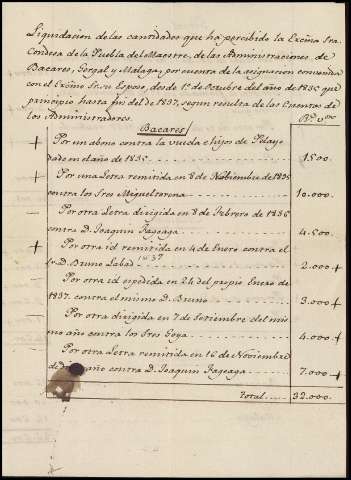 Liquidacion de las cantidades que ha percibido la Excma Sra
Condesa de la Puebla del Maestre, de las Administraciones de
Bacares, Gergal y Malaga, por cuenta de la asignacion convenida
con el Excmo Sr. su Esposo, desde 1º de Octubre del año de 1835 que
principio hasta fin del de 1837, segun resulta de las Cuentas de
los Administradores.
Rs. von
Bacares
Por un abono contra la viuda e hijos de Pelayo
dado en el año de 1835 1500
Por una Letra remitida en 8 de Nobiembre de 1835
contra los Sres Migueltorena 10.000
Por otra Letra dirigida en 8 de Febrero de 1836
contra D. Joaquin Fageaga 4.500
Por otra id remitida en 4 de Enero contra el
1837
D. Bruno Labad 2.000 +
Por otra id espedida en 24 del propio Enero de
1837. contra el mismo D. Bruno 3.000 +
Por otra dirigida en 7 de Setiembre del mis
mo año contra los Sres Goya 4.000 +
Por otra Letra remitida en 16 de Noviembre
de año contra D. Joaquin Fageaga 7.000 +
Total 32.000